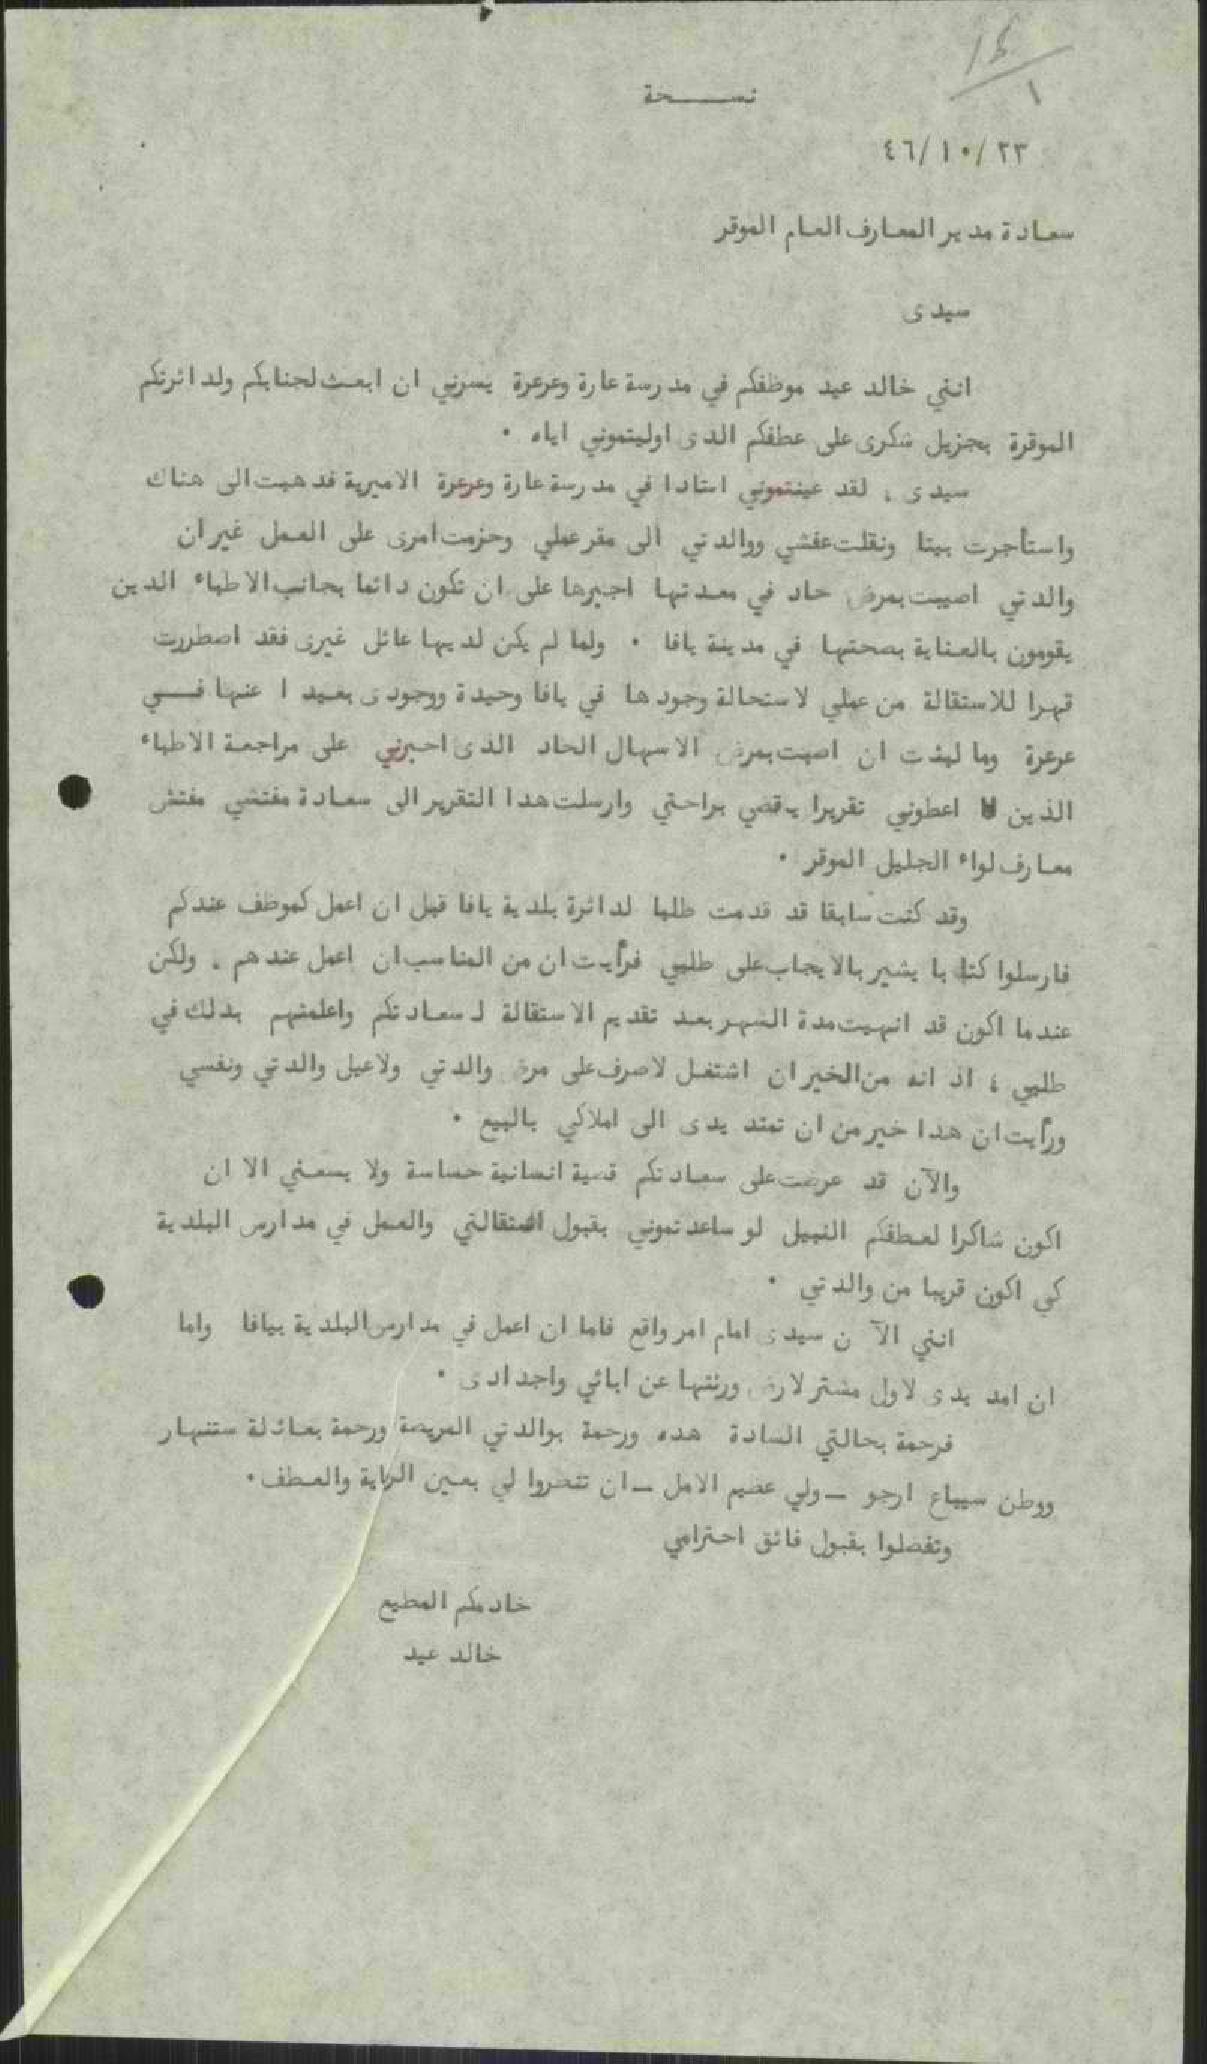 ١٤/١
نسـخة
٤٦/١٠/٢٣
سعادة مدير المعارف العام الموقر
سيدى
انني خالد عيد موظفكم في مدرسة عارة وعرعرة يسرني ان ابعث لجنابكم ولدائرتكم
الموقرة بجزيل شكرى على عطفكم الدى اوليتموني اياه ٠
سيدى ، لقد عينتموني استادا في مدرسة عارة وعرعرة الاميرية فدهبت الى هناك
واستأجرت بيتا ونقلت عفشي ووالدتي الى مقر عملي وحزمت امرى على العمل غير ان
والدتي اصيبت بمرض حاد في معدتها اجبرها على ان تكون دائما بجانب الاطباء الدين
يقومون بالعناية بصحتها في مدينة يافا ٠ ولما لم يكن لديها عائل غيرى فقد اضطررت
قهرا للاستقالة من عملي لاستحالة وجودها في يافا وحيدة ووجودى بعيدا عنها فــي
عرعرة وما لبثت ان اصبت بمرض الاسهال الحاد الذى اجبرني على مراجعة الاطباء
الذين اعطوني تقريرا يقضي براحتي وارسلت هدا التقرير الى سعادة مفتشي مفتش
معارف لواء الجليل الموقر ٠
وقد كنت سابقا قد قدمت طلبا لدائرة بلدية يافا قبل ان اعمل كموظف عندكم
فارسلوا كتابا يشير بالايجاب على طلبي فرأيت ان من المناسب ان اعمل عندهم . ولكن
عندما اكون قد انهيت مدة الشهر بعد تقديم الاستقالة لـ سعادتكم واعلمتهم بدلك في
طلبي ؛ اد انه من الخير ان اشتغل لاصرف على مرض والدتي ولاعيل والدتي ونفسي
ورأيت ان هدا خير من ان تمتد يدى الى املاكي بالبيع ٠
والآن قد عرضت على سعادتكم قضية انسانية حساسة ولا يسعني الا ان
اكون شاكرا لعطفكم النبيل لو ساعدتموني بقبول استقالتي والعمل في مدارس البلدية
كي اكون قريبا من والدتي ٠
انني الآن سيدى امام امر واقع فاما ان اعمل في مدارس البلدية بيافا واما
ان امد يدى لاول مشتر لارض ورثتها عن ابائي واجدادى ٠
فرحمة بحالتي السادة هده ورحمة بوالدتي المريضة ورحمة بعائلة ستنهار
ووطن سيباع ارجو ــ ولي عضيم الامل ــ ان تنضروا لي بعين الرعاية والعطف ٠
وتفضلوا بقبول فائق احترامي
خادمكم المطيع
خالد عيد